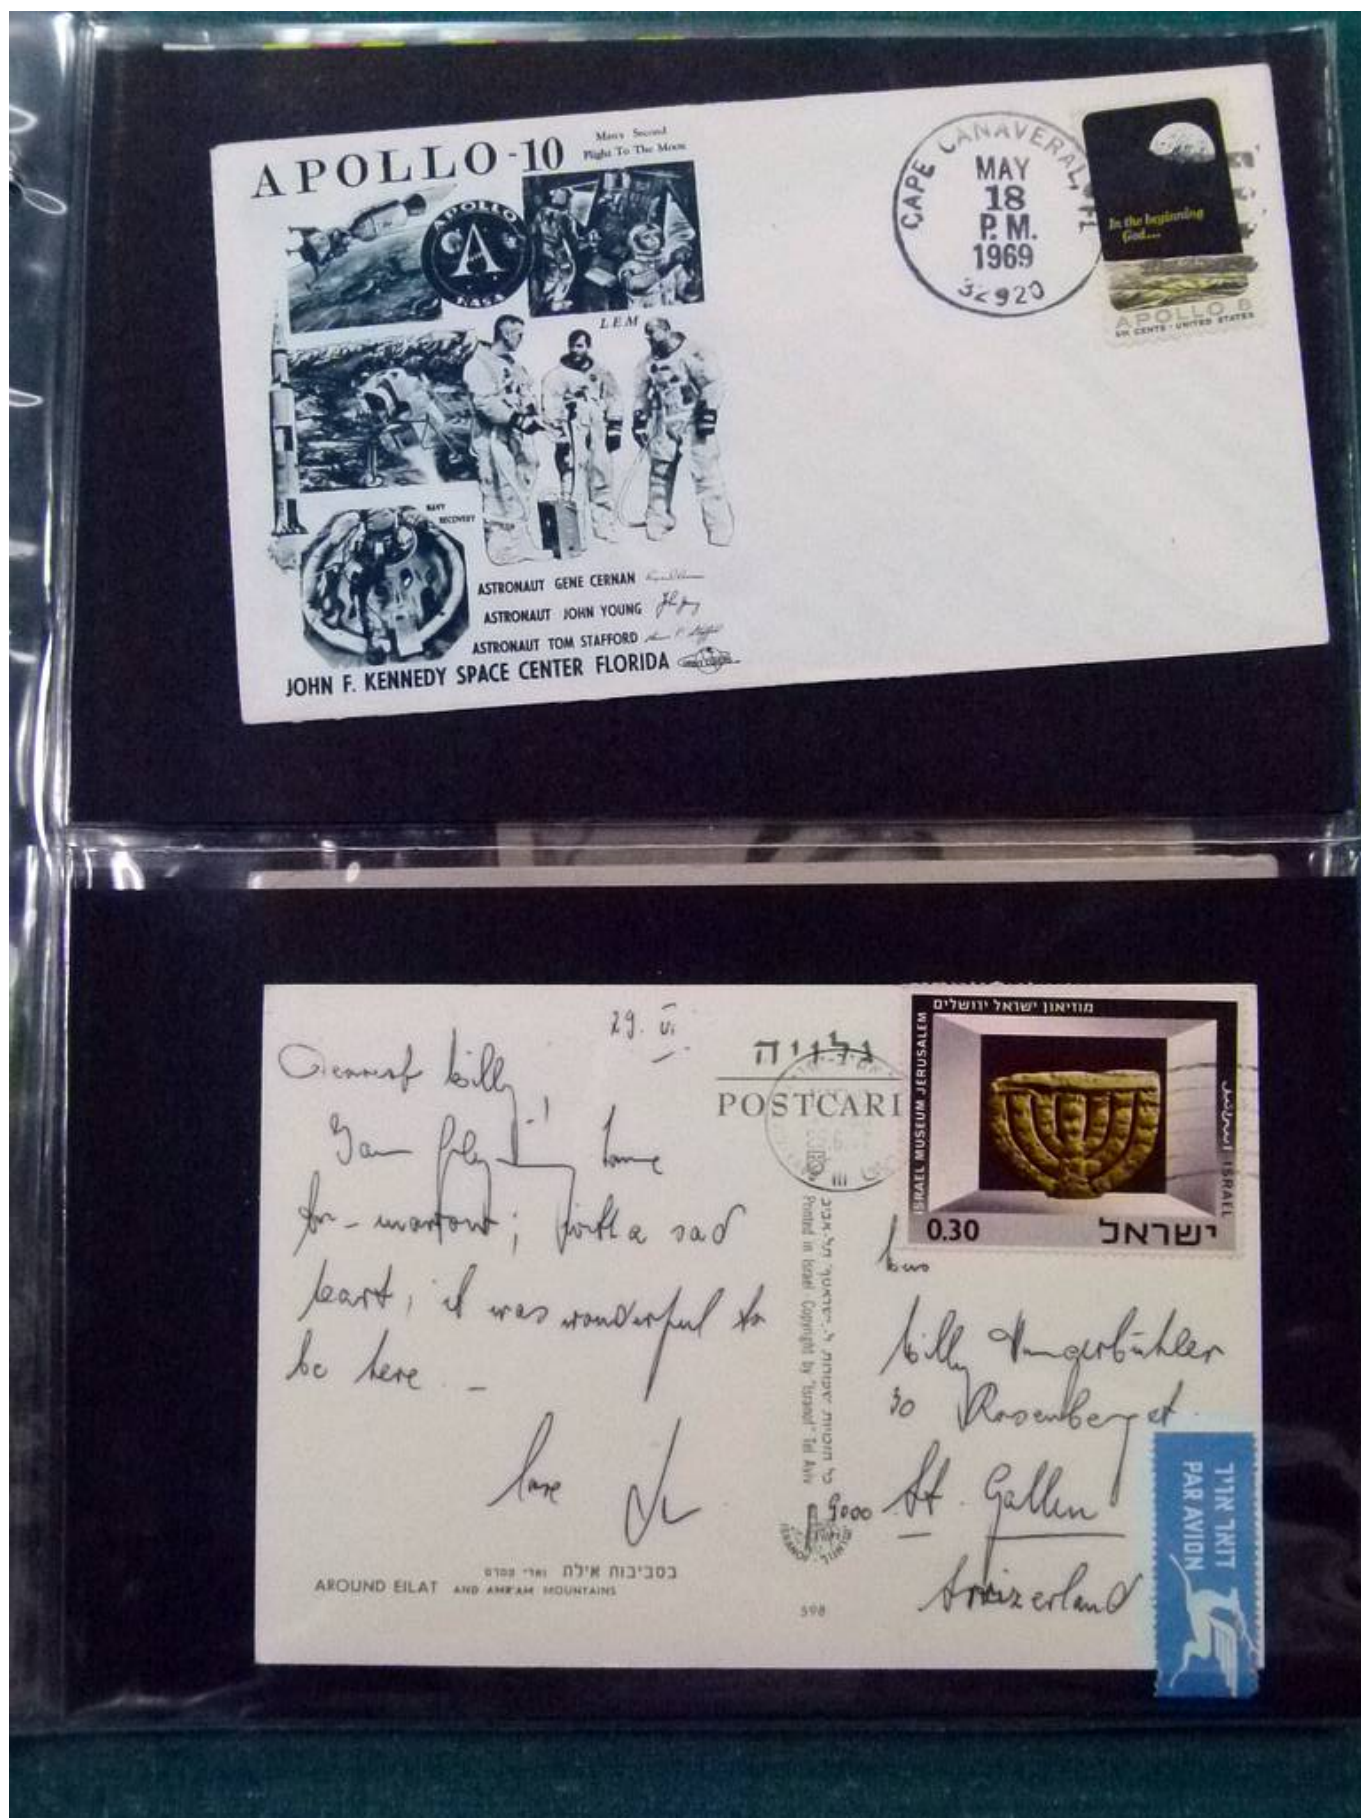 APOLLO-10
Man's Second
Flight To The Moon
APOLLO
NASA
LEM
NAVY
RECOVERY
ASTRONAUT GENE CERNAN
ASTRONAUT JOHN YOUNG
ASTRONAUT TOM STAFFORD
JOHN F. KENNEDY SPACE CENTER FLORIDA
CAPE CANAVERAL, FL
MAY
18
P.M.
1969
32920
In the beginning
God...
APOLLO 8
SIX CENTS · UNITED STATES
29. VI
Dearest Willy
I am flying home
to-morrow; with a sad
heart, it was wonderful to
be here. -
love
בסביבות אילת
AROUND EILAT AND AMRAM MOUNTAINS
גלויה
POSTCARD
Printed in Israel Copyright by "Isranof" Tel Aviv
598
מוזיאון ישראל ירושלים
ISRAEL MUSEUM JERUSALEM
ISRAEL
0.30
ישראל
Willy Hungerbühler
30 Rosenbergst.
9000 St. Gallen
Switzerland
דואר אויר
PAR AVION